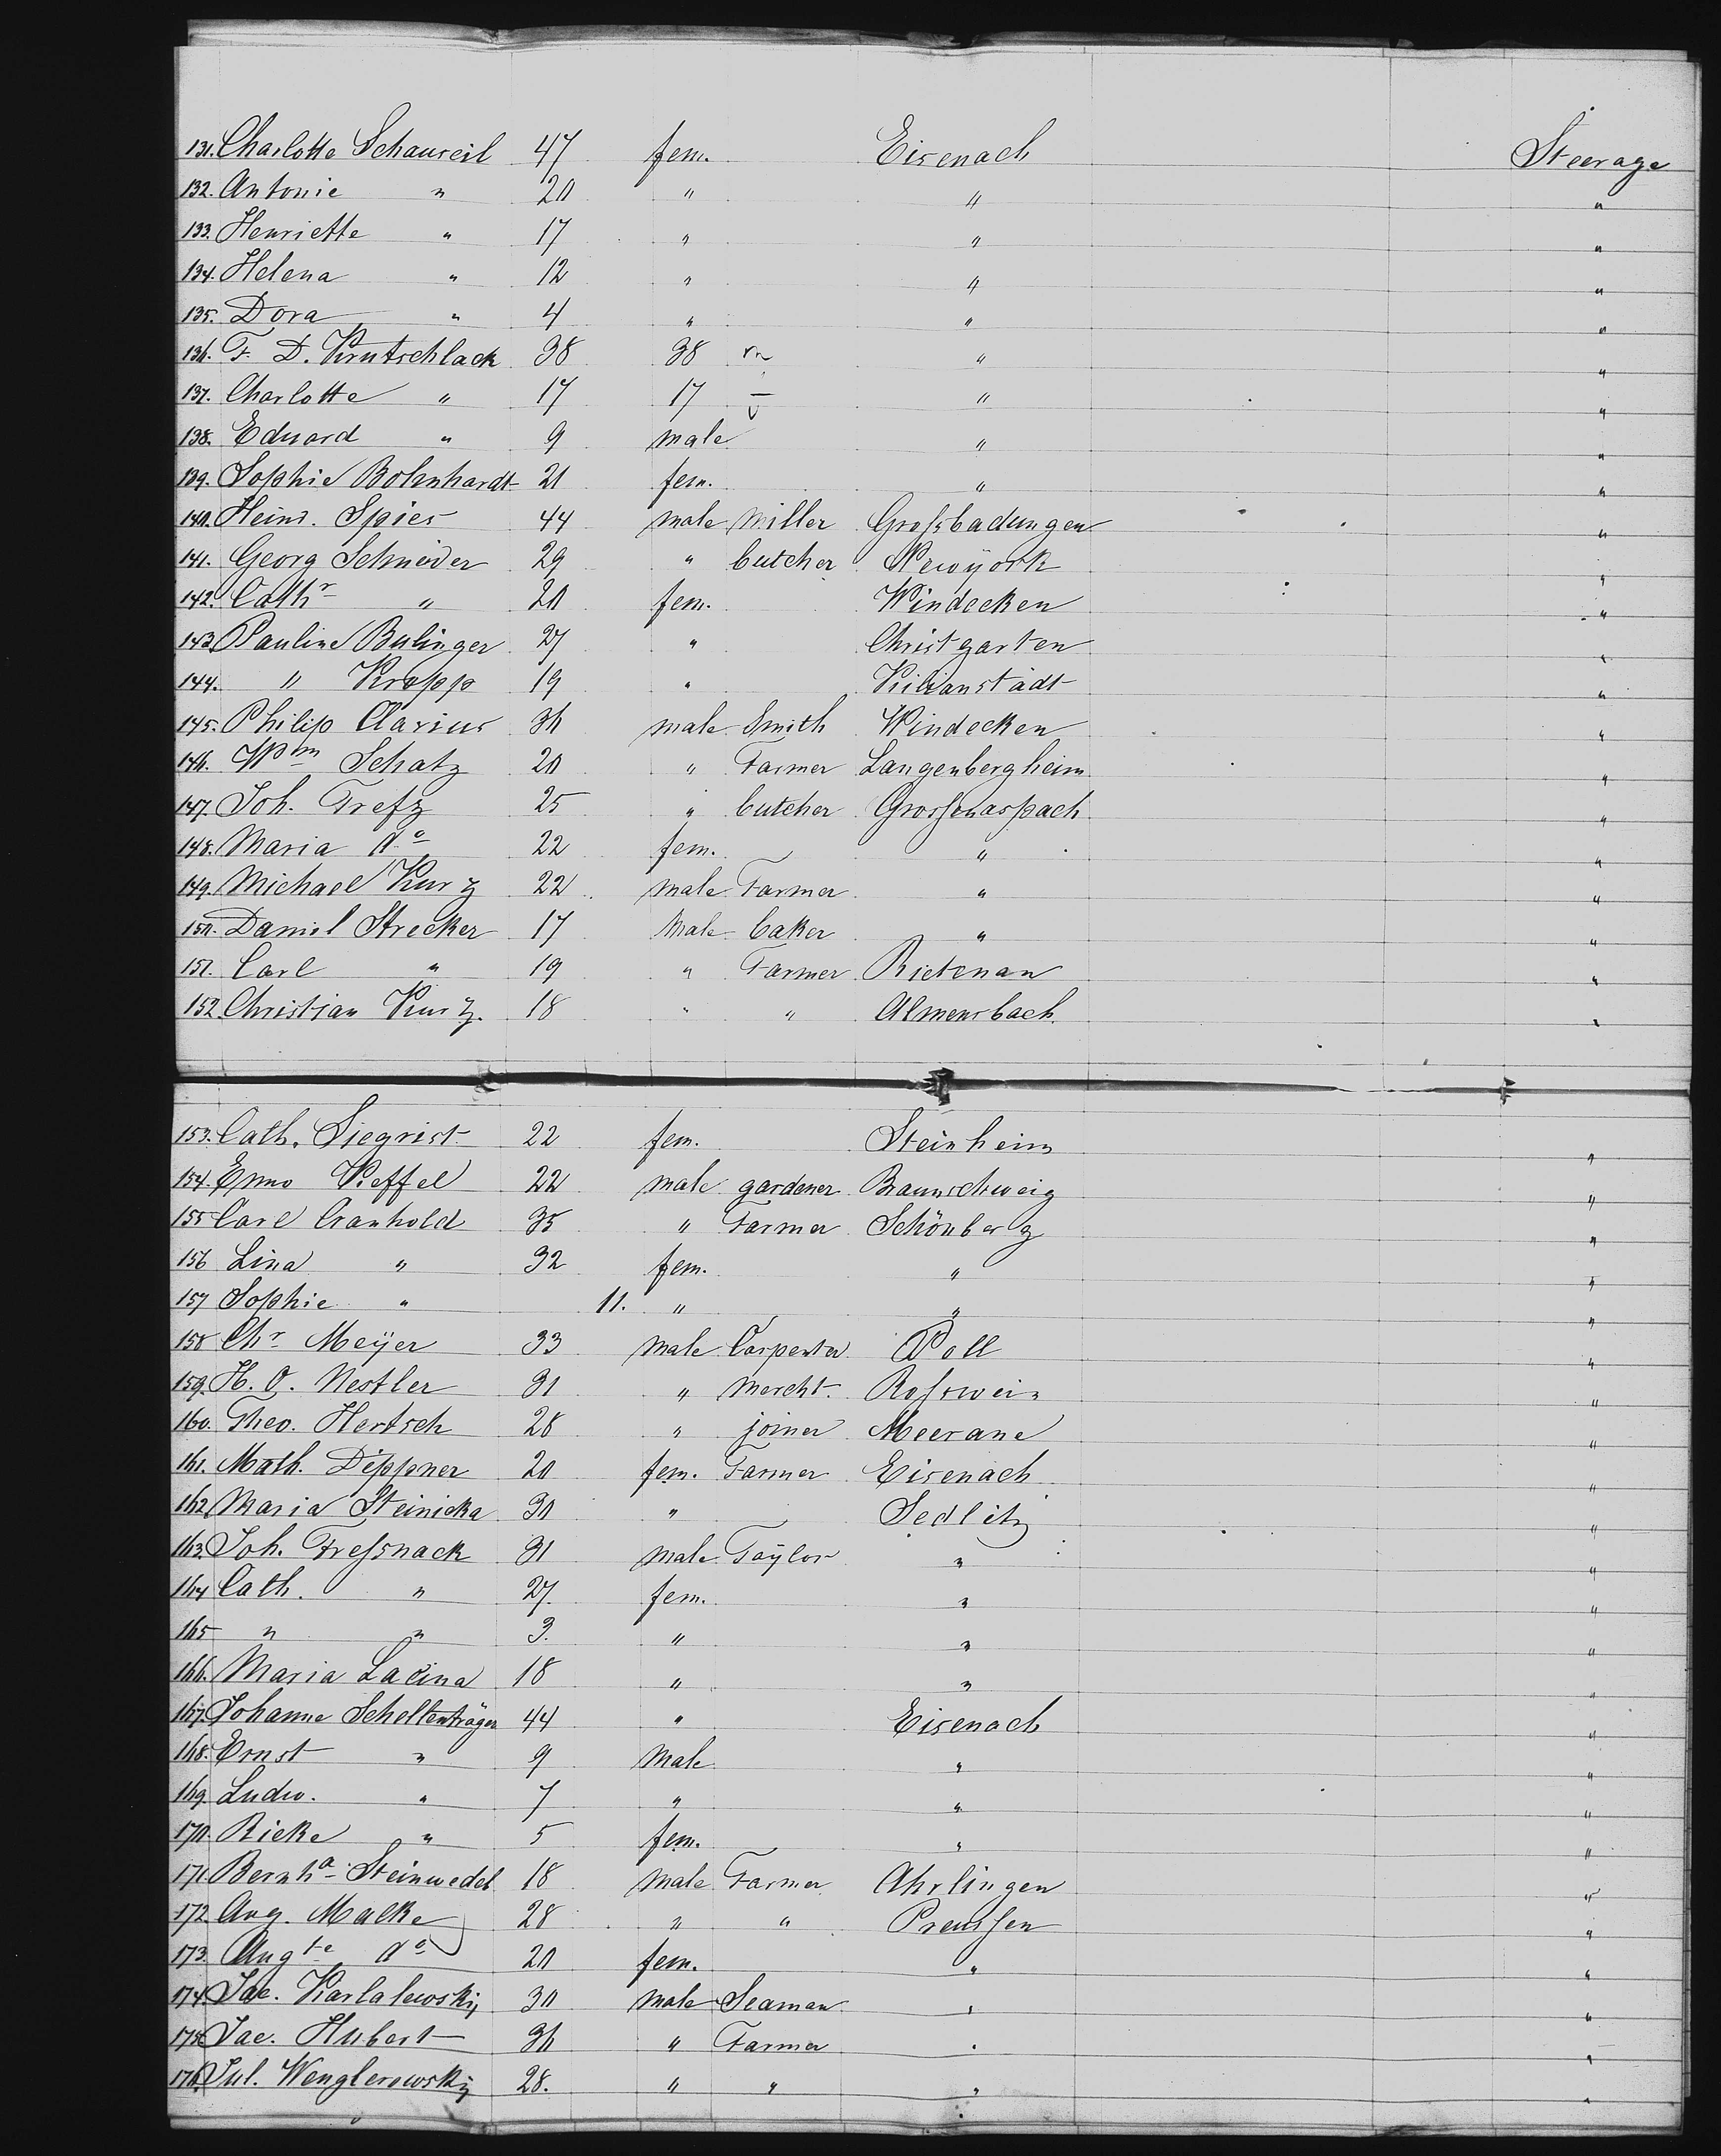 131. Charlotte Schauseil 47 fem. Eisenach Steerage
132. Antonie " 20 " " "
133. Henriette " 17 " " "
134. Helena " 12 " " "
135. Dora " 4 " " "
136. F. D. Krutschlack 38 38 " "
137. Charlotte " 17 17 — " "
138. Eduard " 9 male " "
139. Sophie Bohnhardt 21 fem. " "
140. Heinr. Spies 44 male Miller Grofsbadungen "
141. Georg Schneider 29 " butcher Newÿork "
142. Cathr " 20 fem. Windecken "
143. Pauline Bulinger 27 " Christgarten "
144. " Kropp 19 " Kilianstädt "
145. Philip Clarius 36 male Smith Windecken "
146. Wm Schatz 20 " Farmer Langenbergheim "
147. Joh. Trefz 25 " butcher Grossenaspach "
148. Maria do 22 fem. " "
149. Michael Kurz 22 male Farmer " "
150. Daniel Strecker 17 Male baker " "
151. Carl " 19 " Farmer Rietenau "
152. Christian Kurz. 18 " " Almersbach "
153. Cath. Siegrist 22 fem. Steinheim "
154. Enno Keffel 22 male gardener Braunschweig "
155 Carl Cranhold 35 " Farmer Schönberg "
156 Lina " 32 fem. " "
157 Sophie " 11. " " "
158 Chr Meÿer 33 Male Carpenter Poll "
159. H. O. Nestler 31 " Mercht. Rofswein "
160. Theo. Hertsch 28 " joiner Meerane "
161. Math. Dippner 20 fem. Farmer Eisenach "
162. Maria Steinicka 30 " Sedlitz "
163. Joh. Frefsnack 31 Male Taÿlor " "
164 Cath. " 27. fem. " "
165 " " 3. " " "
166. Maria Lacina 18 " " "
167. Johanne Scheltenträger 44 " Eisenach "
168. Ernst " 9 Male " "
169. Ludw. " 7 " " "
170. Rieke " 5 fem. " "
171. Bernhd Steinwedel 18 Male Farmer Ahrlingen "
172. Aug. Malke 28 " " Preussen "
173. Augte do 20 fem. " "
174. Jac. Karlalewskÿ 30 male Seaman " "
175. Jac. Hubert 36 " Farmer " "
176. Jul. Wenglerowskÿ 28. " " " "